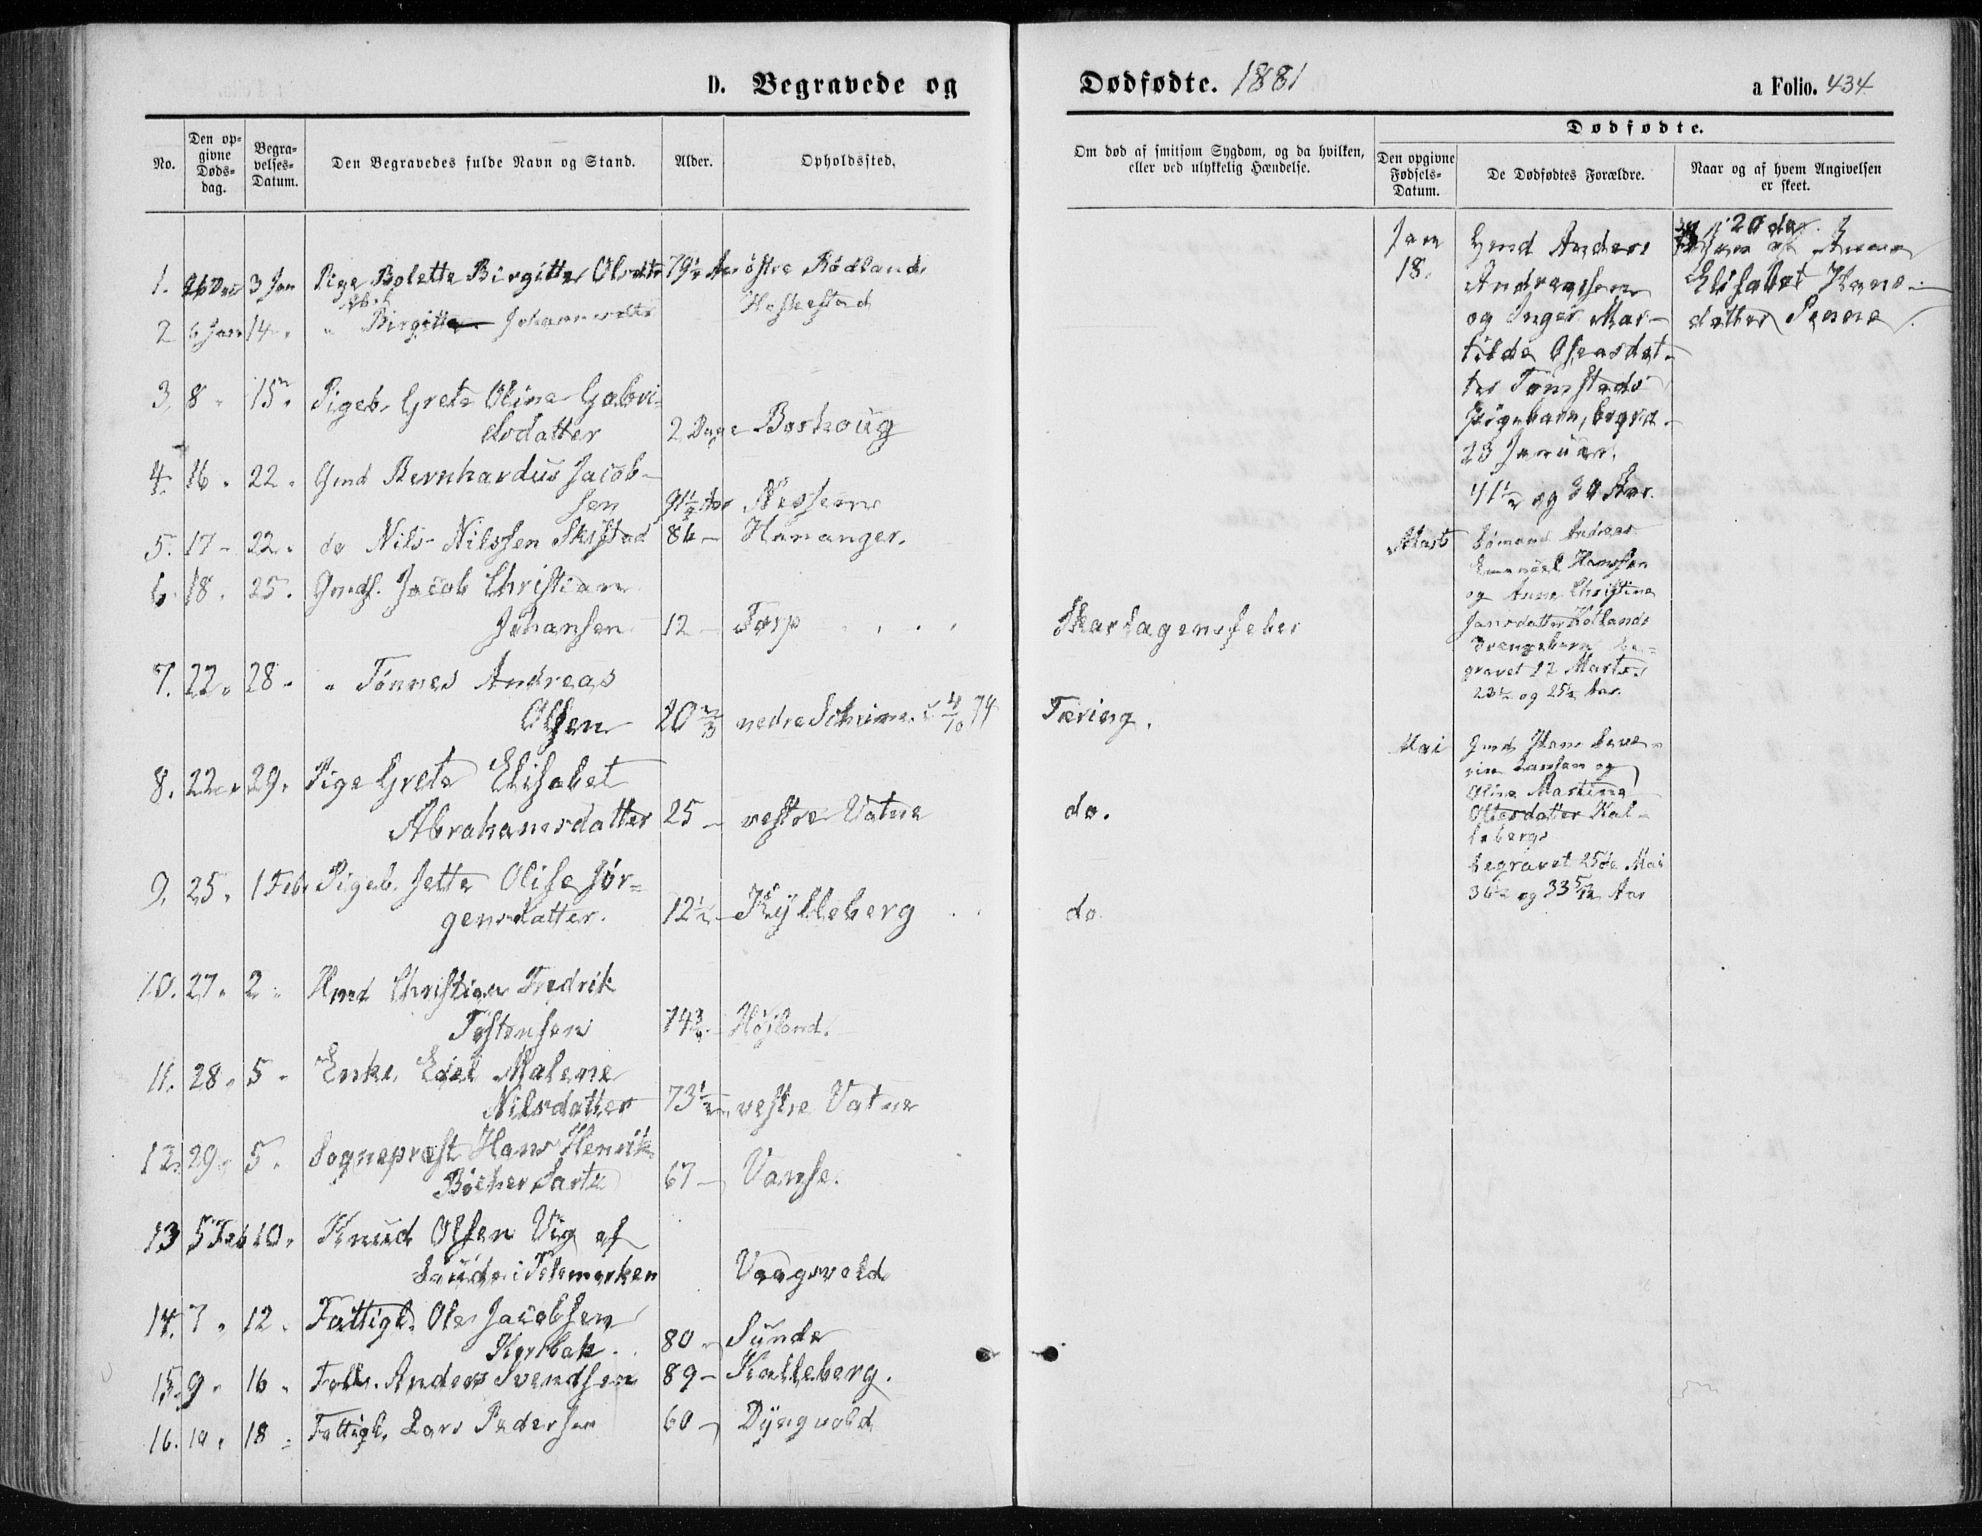 D. Begravede og Dødfødte. 1881
a Folio. 434
No.
Den opgivne Dødsdag.
Begravelses-Datum.
Den Begravedes fulde Navn og Stand.
Alder.
Opholdssted.
Om død af smitsom Sygdom, og da hvilken, eller ved ulykkelig Hændelse.
Dødfødte.
Den opgivne Fødsels-Datum.
De Dødfødtes Forældre.
Naar og af hvem Angivelsen er skeet.
1. 26 Dec 3 Jan Pige Bolette Birgitte Olsdtr 79½ Aar østre Rødland
2 6 Jan 14 " " Birgitte Johannesdtr
3. 8 " 15 " Pigeb. Grete Oline Gabri-
elsdatter 2 Dage Boshoug
4. 16 " 22 " Gmd Bernhardus Jacob-
sen 91½ Aar Nessem
5. 17 - 22 " do Nils Nilssen Skistad 86 - Hananger.
6. 18 " 25 " Gmds. Jacob Christian
Johansen 12 - Torp Skarlagensfeber
7. 22 " 28 " " Tønnes Andreas
Olsen 20 2/3 nedre Schrime. v 4/10 74 Tæring.
8. 22 " 29 " Pige Grete Elisabet
Abrahamsdatter 25 - vestre Vatne do.
9. 25 " 1 Feb Pigeb. Jette Olise Jør-
gensdatter. 12½ - Kylleberg do.
10. 27 " 2 " Hmd Christian Fredrik
Tostensen 74¾ - Højland.
11. 28 " 5 " Enke Edel Malene
Nilsdatter 73½ - vestre Vatne
12. 29 " 5 " Sogneprest Hans Henrik
Bøcher Sartz 67 - Vanse.
13 5 Feb 10 " Knud Olsen Vig af
Saude i Telemarken Vaagsvold
14. 7 " 12 " Fattigl. Ole Jacobsen
80 - Sunde
15. 9 " 16 " Anders Svendsen 89 - Kalleberg.
16. 10 " 18 " Fattigl. Lars Pedersen 60 - Dyngvold
Jan
18.
Gmd Anders
Andreassen
og Inger Mar-
tilde Oseasdat-
ter Tomstads
Pigebarn, begra.
23 Januar.
41½ og 30 Aar.
20de
Jan af Anna
Elisabet Hans-
datter Penne
Marts
Sømand Andreas
Emanuel Hanssen
og Anne Christine
Jansdatter Kollands
Drengebarn be-
gravet 12 Marts
23½ og 25½ Aar.
Mai
Gmd Hans Seve-
rin Larssen og
Oline Martine
Oltesdatter Kal-
lebergs
begravet 25de Mai
36½ og 33 5/12 Aar